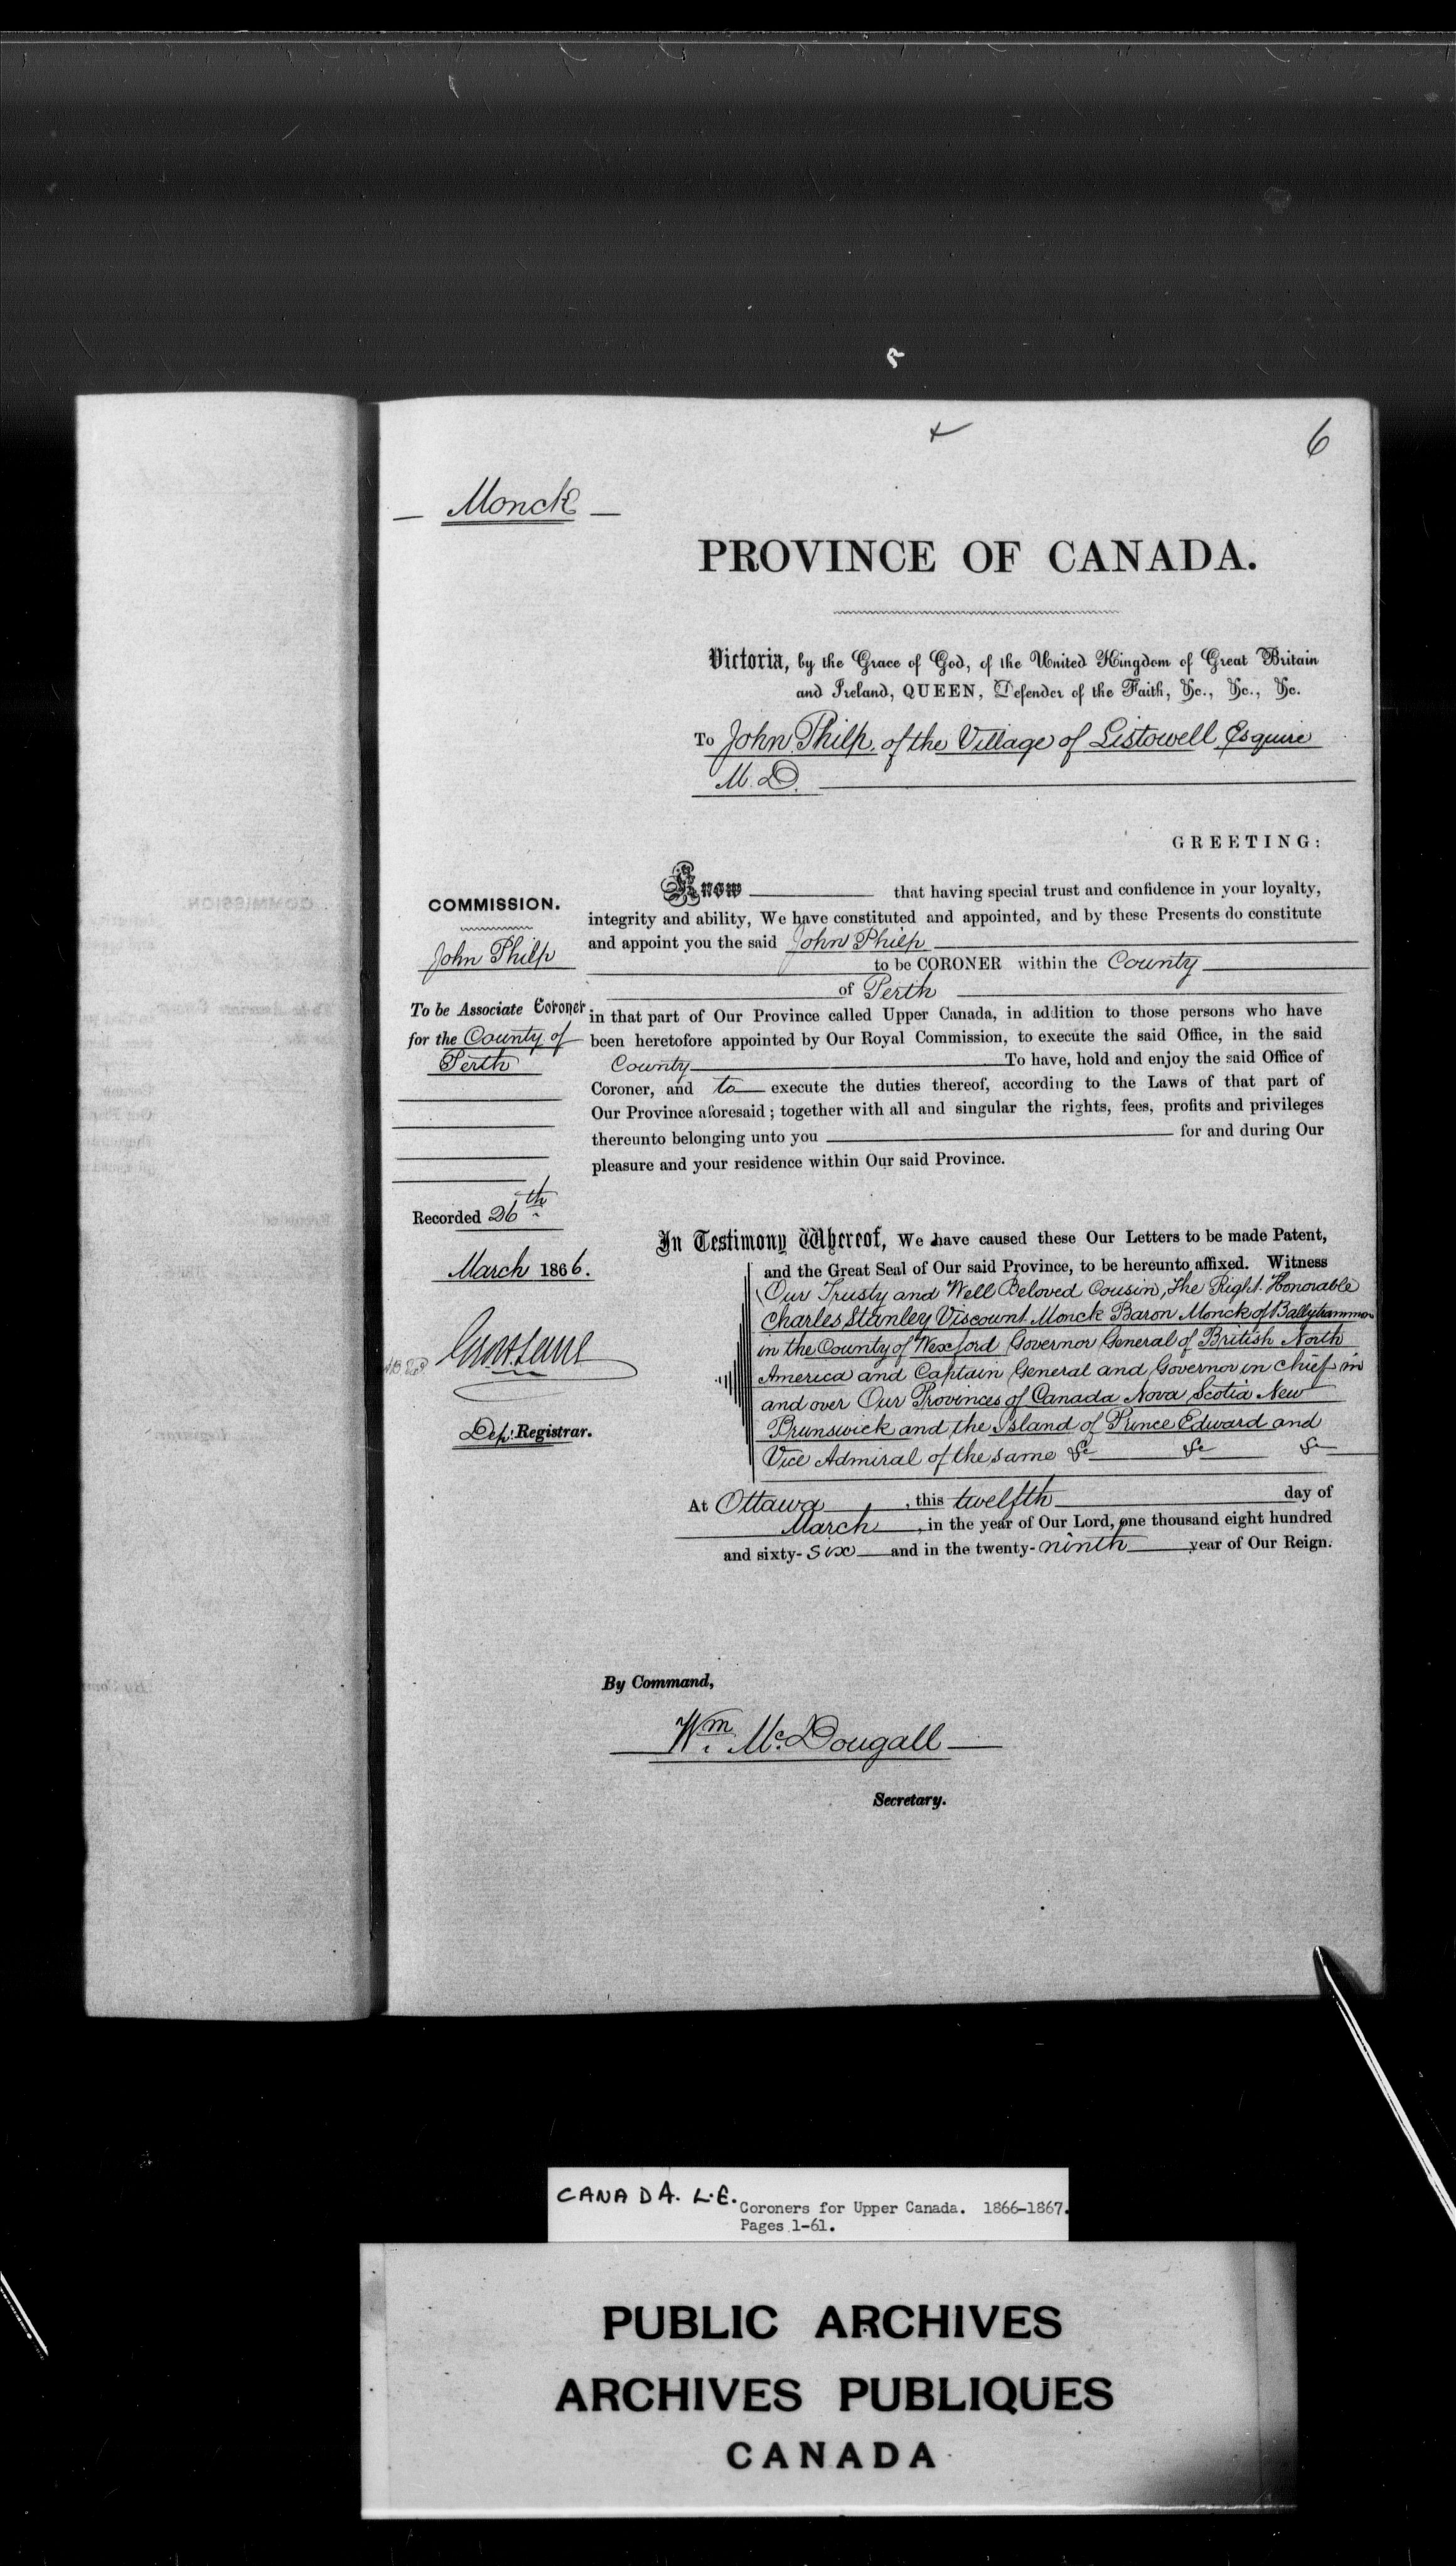 6
Monck
PROVINCE OF CANADA.
Victoria, by the Grace of God, of the United Kingdom of Great Britain
and Ireland, QUEEN, Defender of the Faith, &c., &c., &c.
To John Philp, of the Village of Listowell Esquire
M. D.
GREETING:
Know that having special trust and confidence in your loyalty,
integrity and ability, We have constituted and appointed, and by these Presents do constitute
and appoint you the said John Philp
to be CORONER within the County
of Perth
in that part of Our Province called Upper Canada, in addition to those persons who have
been heretofore appointed by Our Royal Commission, to execute the said Office, in the said
County To have, hold and enjoy the said Office of
Coroner, and to execute the duties thereof, according to the Laws of that part of
Our Province aforesaid; together with all and singular the rights, fees, profits and privileges
thereunto belonging unto you for and during Our
pleasure and your residence within Our said Province.
COMMISSION.
John Philp
To be Associate Coroner
for the County of
Perth
Recorded 26th
March 1866.
Dep. Registrar.
In Testimony Whereof, We have caused these Our Letters to be made Patent,
and the Great Seal of Our said Province, to be hereunto affixed. Witness
Our Trusty and Well Beloved Cousin, the Right Honorable
Charles Stanley Viscount Monck Baron Monck of Ballytrammon
in the County of Wexford Governor General of British North
America and Captain General and Governor in Chief in
and over Our Provinces of Canada Nova Scotia New
Brunswick and the Island of Prince Edward and
Vice Admiral of the same &c &c &c
At Ottawa, this twelfth day of
March, in the year of Our Lord, one thousand eight hundred
and sixty-six and in the twenty-ninth year of Our Reign.
By Command,
Wm. McDougall
Secretary.
CANADA. L.E.
Coroners for Upper Canada. 1866-1867.
Pages 1-61.
PUBLIC ARCHIVES
ARCHIVES PUBLIQUES
CANADA